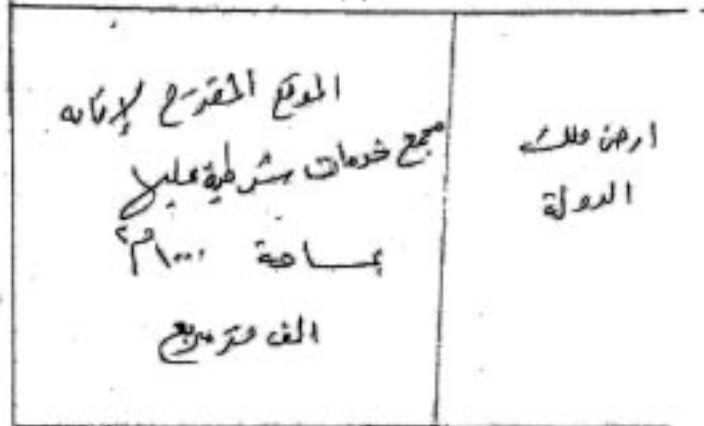 الموقع المقترح لإقامه
مجمع خدمات شرطية عليها
بمساحة ١٠٠٠م٢
الف متر مربع
ارض ملك
الدولة